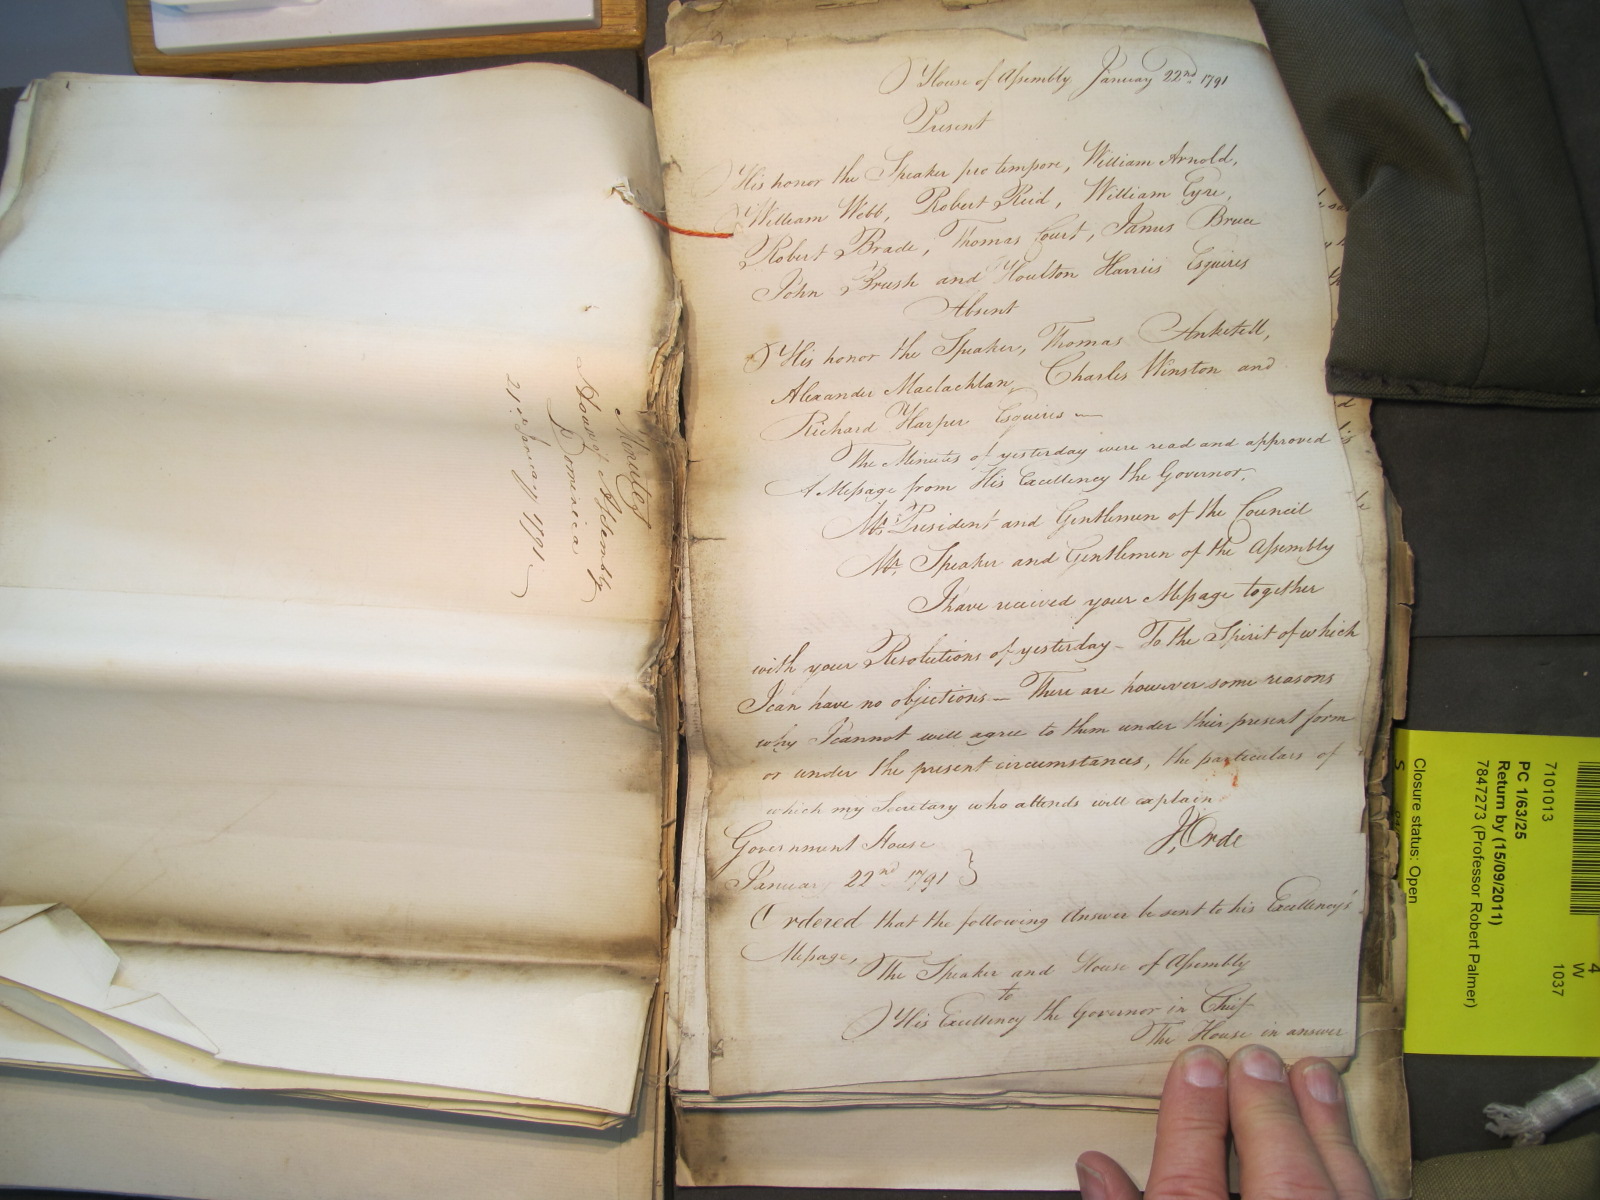 Minutes
House of Assembly
Dominica
21st January 1791
House of Assembly January 22nd 1791
Present
His honor the Speaker pro tempore, William Arnold,
William Webb, Robert Reid, William Eyre,
Robert Brade, Thomas Court, James Bruce
John Brush and Houlton Harries Esquires
Absent
His honor the Speaker, Thomas Anketell,
Alexander Maclachlan, Charles Winston and
Richard Harper Esquires —
The Minutes of yesterday were read and approved
A Message from His Excellency the Governor,
Mr. President and Gentlemen of the Council
Mr. Speaker and Gentlemen of the Assembly
I have received your Message together
with your Resolutions of yesterday – To the Spirit of which
I can have no objections – There are however some reasons
why I cannot well agree to them under their present form
or under the present circumstances, the particulars of
which my Secretary who attends will explain
Government House
J, Orde
January 22nd 1791 }
Ordered that the following Answer be sent to his Excellency's
Message,
The Speaker and House of Assembly
to
His Excellency the Governor in Chief
The House in answer
4
W
1037
7101013
PC 1/63/25
Return by (15/09/2011)
7847273 (Professor Robert Palmer)
Closure status: Open